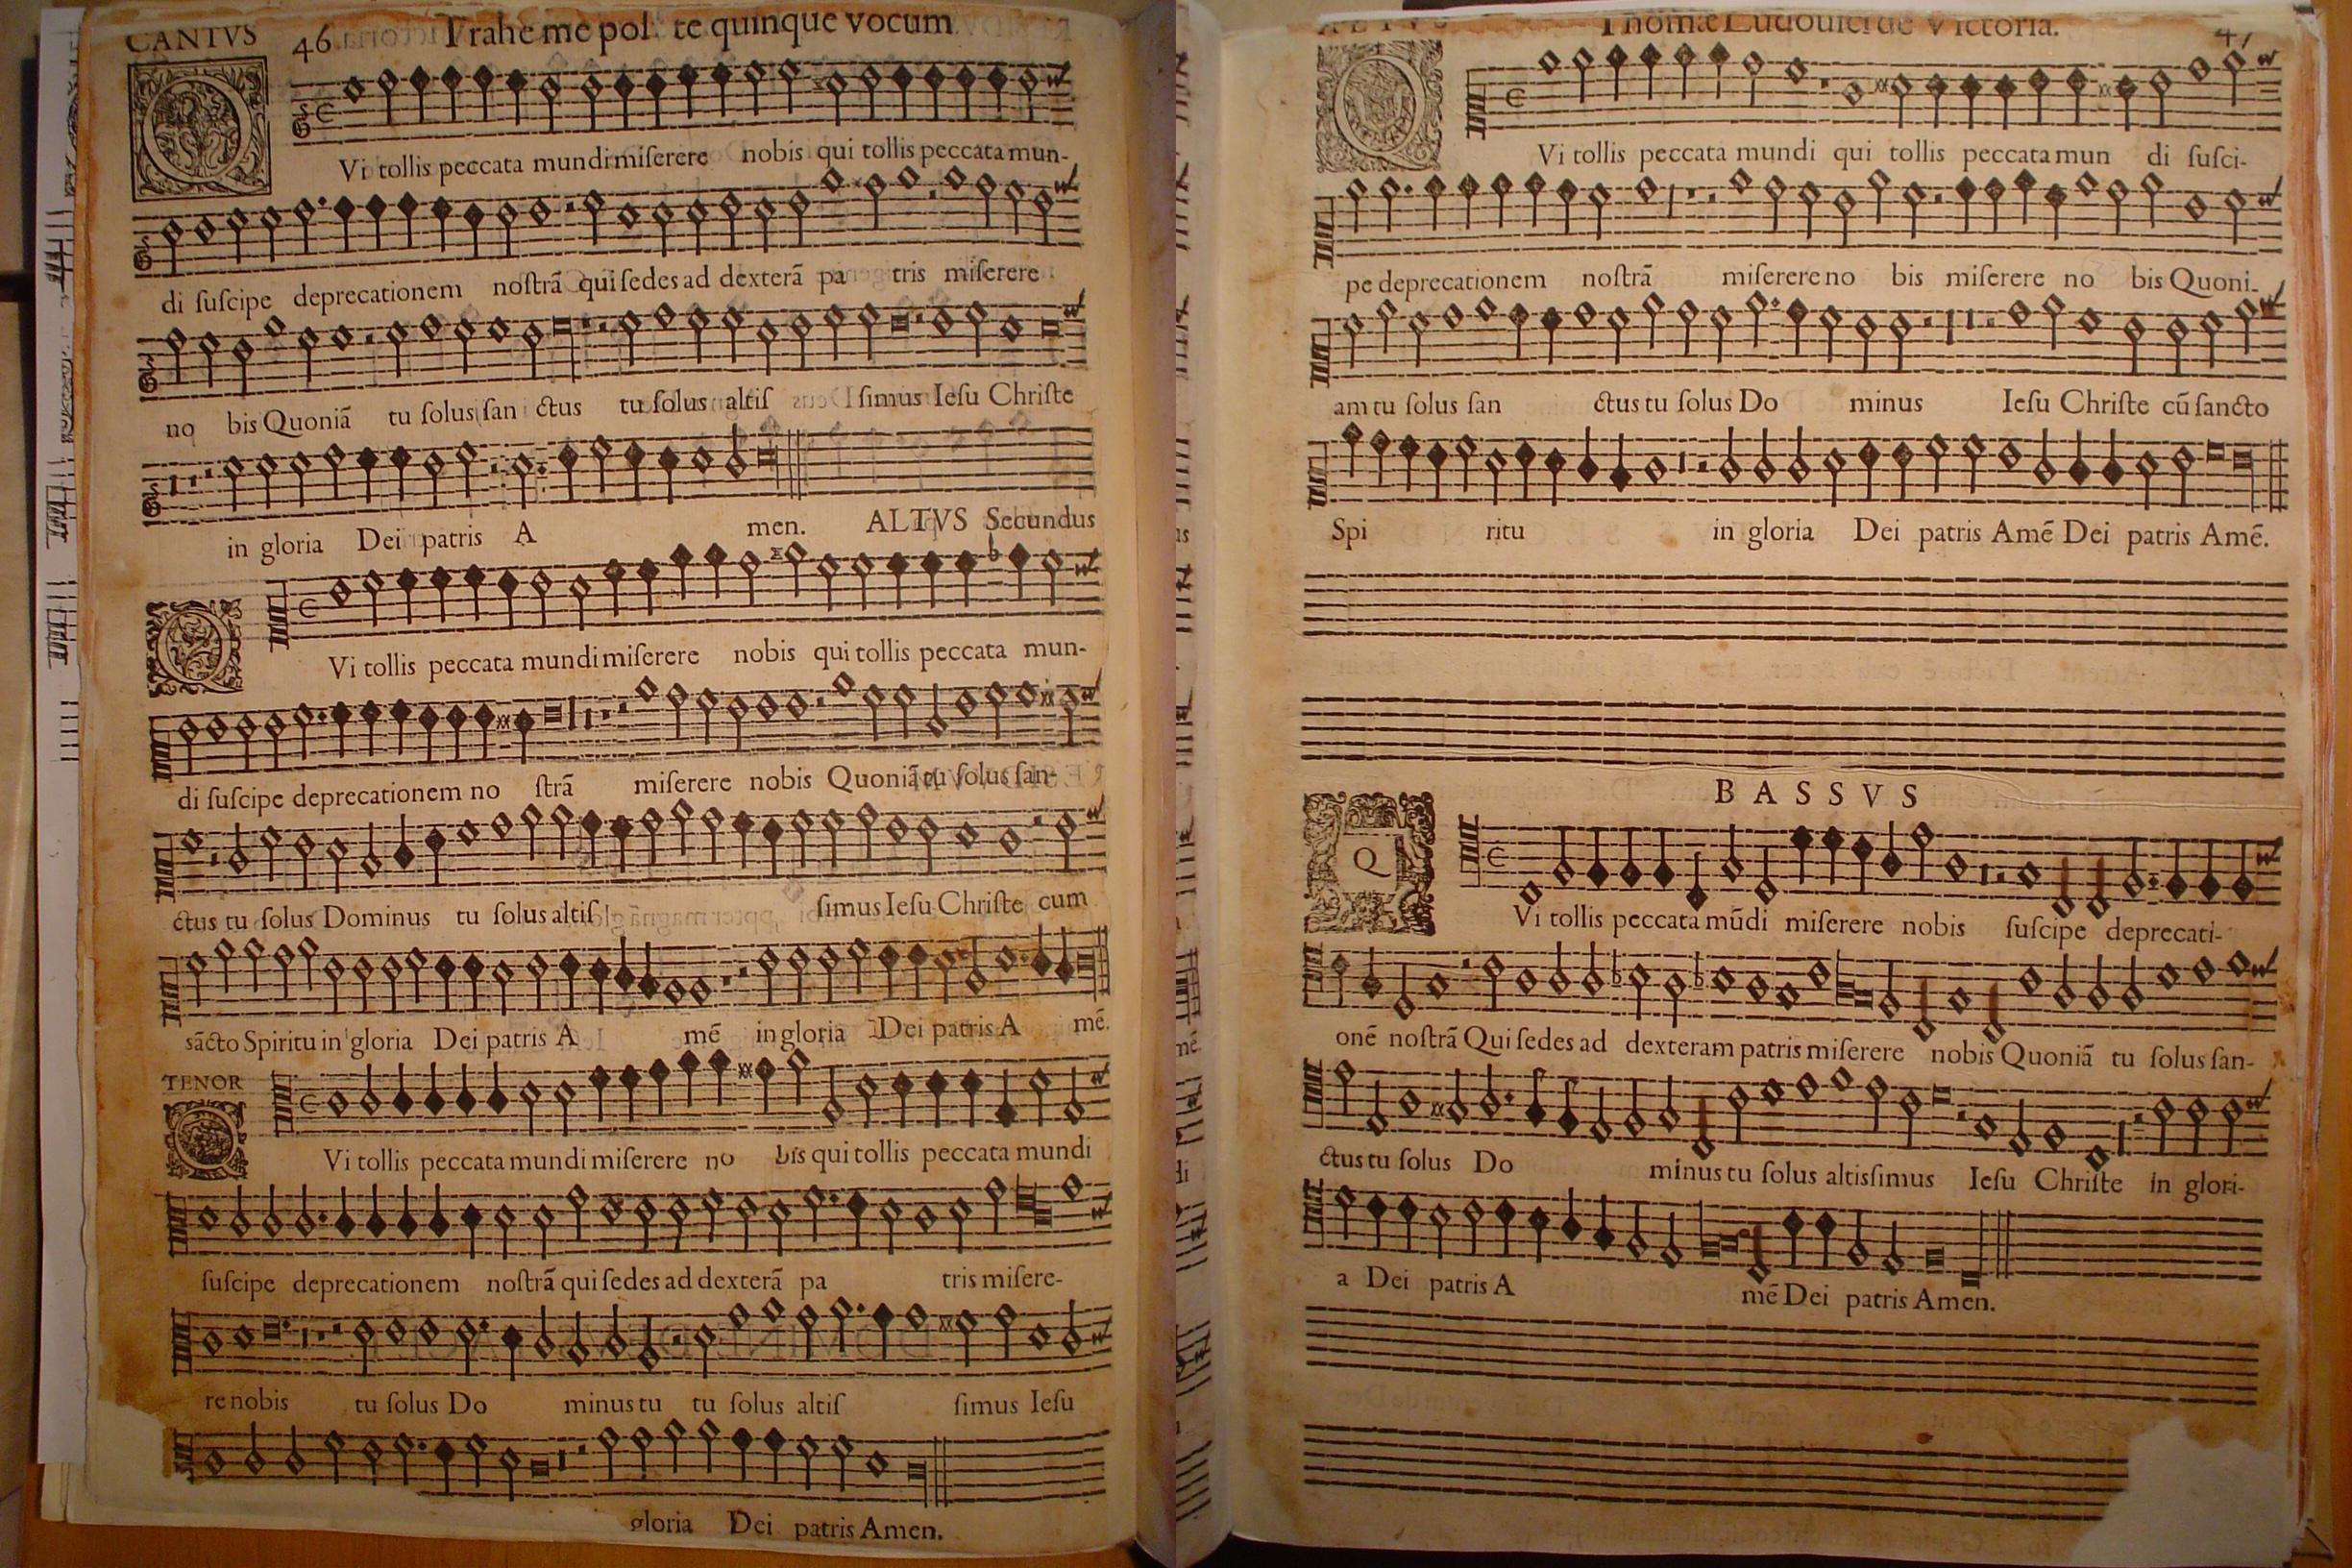 CANTVS 46 Trahe me post te quinque vocum
Vi tollis peccata mundi miſerere nobis qui tollis peccata mun-
di ſuſcipe deprecationem noſtrã qui ſedes ad dexterã pa tris miſerere
no bis Quoniã tu ſolus ſan ctus tu ſolus altiſ ſimus Ieſu Chriſte
in gloria Dei patris A men. ALTVS Secundus
Vi tollis peccata mundi miſerere nobis qui tollis peccata mun-
di ſuſcipe deprecationem no ſtrã miſerere nobis Quoniã tu ſolus ſan-
ctus tu ſolus Dominus tu ſolus altiſ ſimus Ieſu Chriſte cum
sãcto Spiritu in gloria Dei patris A mẽ in gloria Dei patris A mẽ.
TENOR
Vi tollis peccata mundi miſerere no bis qui tollis peccata mundi
ſuſcipe deprecationem noſtrã qui ſedes ad dexterã pa tris miſere-
re nobis tu ſolus Do minus tu tu ſolus altiſ ſimus Ieſu
gloria Dei patris Amen.
ALTVS Thomæ Ludouici de Victoria. 47
Vi tollis peccata mundi qui tollis peccata mun di ſuſci-
pe deprecationem noſtrã miſerere no bis miſerere no bis Quoni-
am tu ſolus ſan ctus tu ſolus Do minus Ieſu Chriſte cũ ſancto
Spi ritu in gloria Dei patris Amẽ Dei patris Amẽ.
BASSVS
Q
Vi tollis peccata mũdi miſerere nobis ſuſcipe deprecati-
onẽ noſtrã Qui ſedes ad dexteram patris miſerere nobis Quoniã tu ſolus ſan-
ctus tu ſolus Do minus tu ſolus altisſimus Ieſu Chriſte in glori-
a Dei patris A mẽ Dei patris Amen.